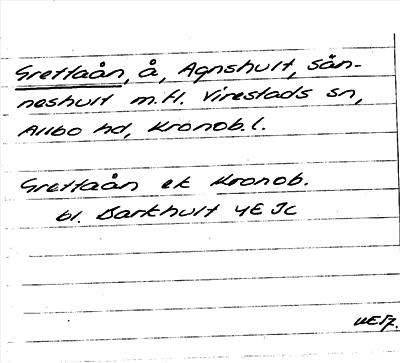 Grettaån, å, Agnshult, Sän-
neshult m.fl. Virestads sn,
Allbo hd, Kronob. l.
Grettaån ek Kronob.
bl. Barkhult 4E Jc